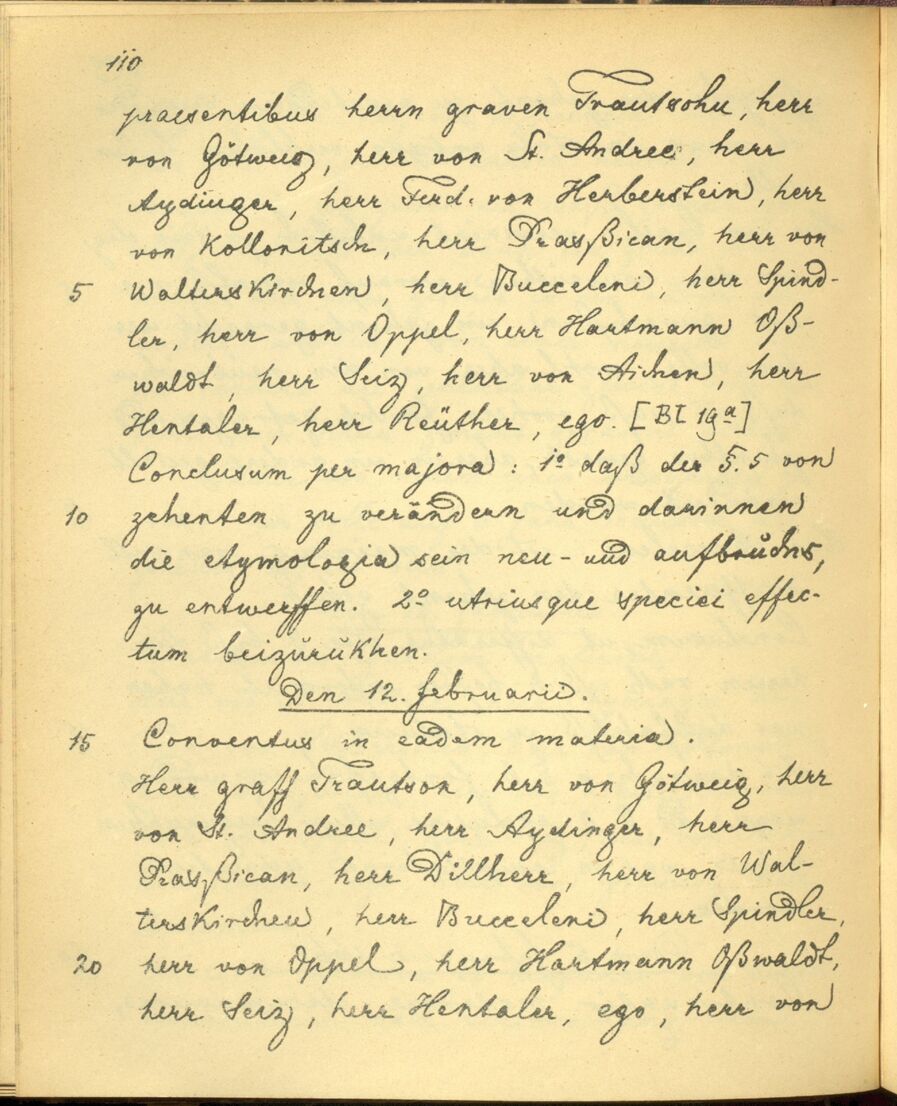 110
praesentibus herrn graven Trautsohn, herr
von Götweig, herr von St. Andree, herr
Aydinger, herr Ferd. von Herberstein, herr
von Kollonitsch, herr Prasßican, herr von
5 Walterskirchen, herr Bucceleni, herr Spind-
ler, herr von Oppel, herr Hartmann Oß-
waldt, herr Seiz, herr von Aichen, herr
Hentaler, herr Reüther, ego. [Bl 19a]
Conclusum per majora: 1o daß der §. 5 von
10 zehenten zu verändern und darinnen
die etymologia sein neu- und aufbruchs,
zu entwerffen. 2o utriusque speciei effec-
tum beizurukhen.
Den 12. februarii.
15 Conventus in eadem materia.
Herr graff Trautson, herr von Götweig, herr
von St. Andree, herr Aydinger, herr
Prasßican, herr Dillherr, herr von Wal-
terskirchen, herr Bucceleni, herr Spindler,
20 herr von Oppel, herr Hartmann Oßwaldt,
herr Seiz, herr Hentaler, ego, herr von